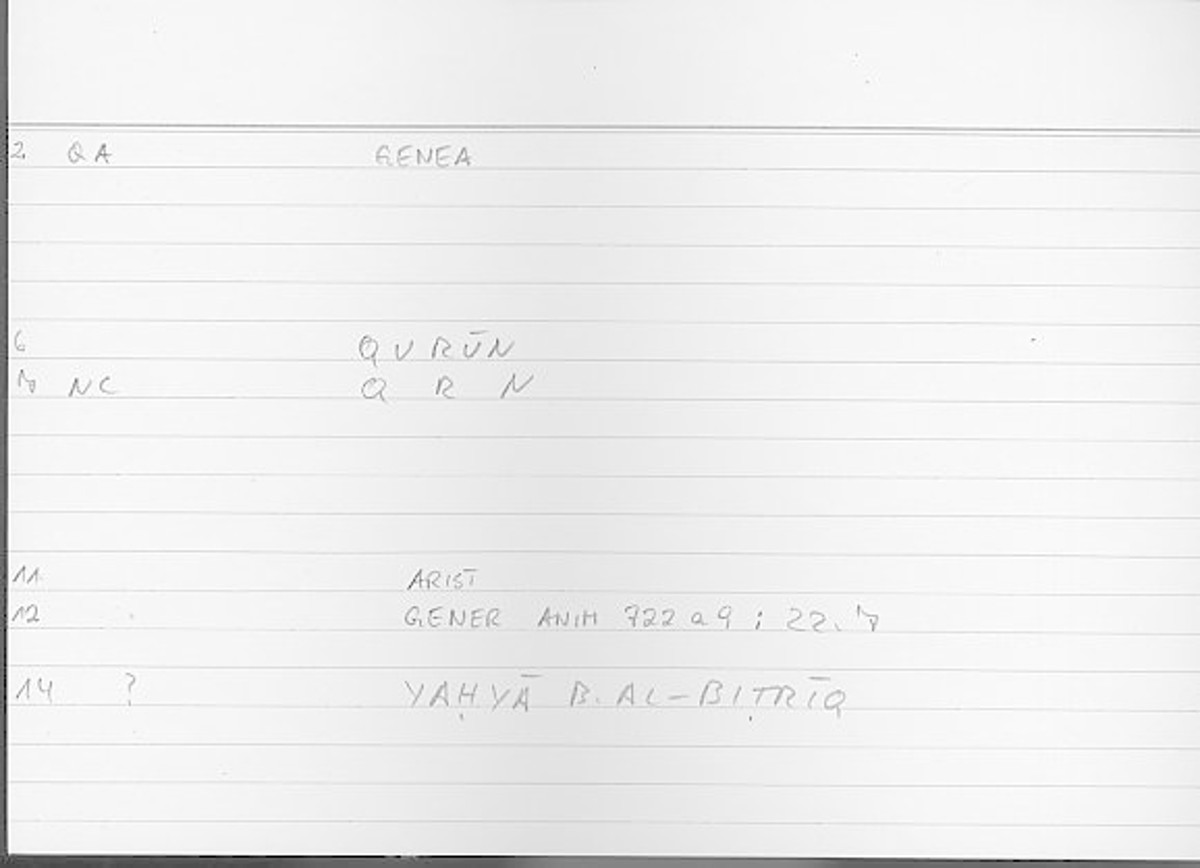 2. QA GENEA
6 QURŪN
7 NC Q R N
11. ARIST
12 GENER ANIM 722 a 9 ; 22.7
14 ? YAḤYĀ B. AL-BIṬRĪQ